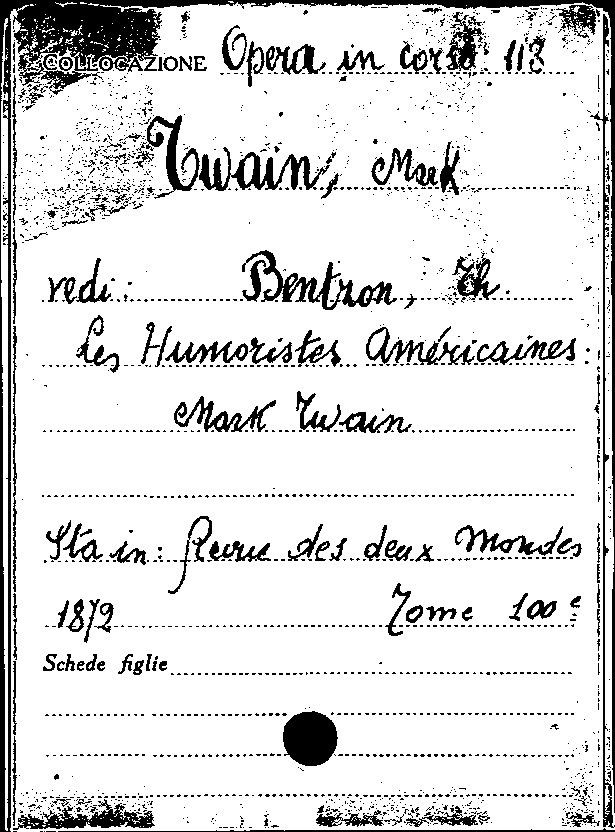 COLLOCAZIONE Opera in corso 113
Twain, Mark
vedi: Bentzon, Th.
Les Humoristes Américaines:
Mark Twain
Sta in: Revue des deux Mondes
1872 Tome 100e
Schede figlie